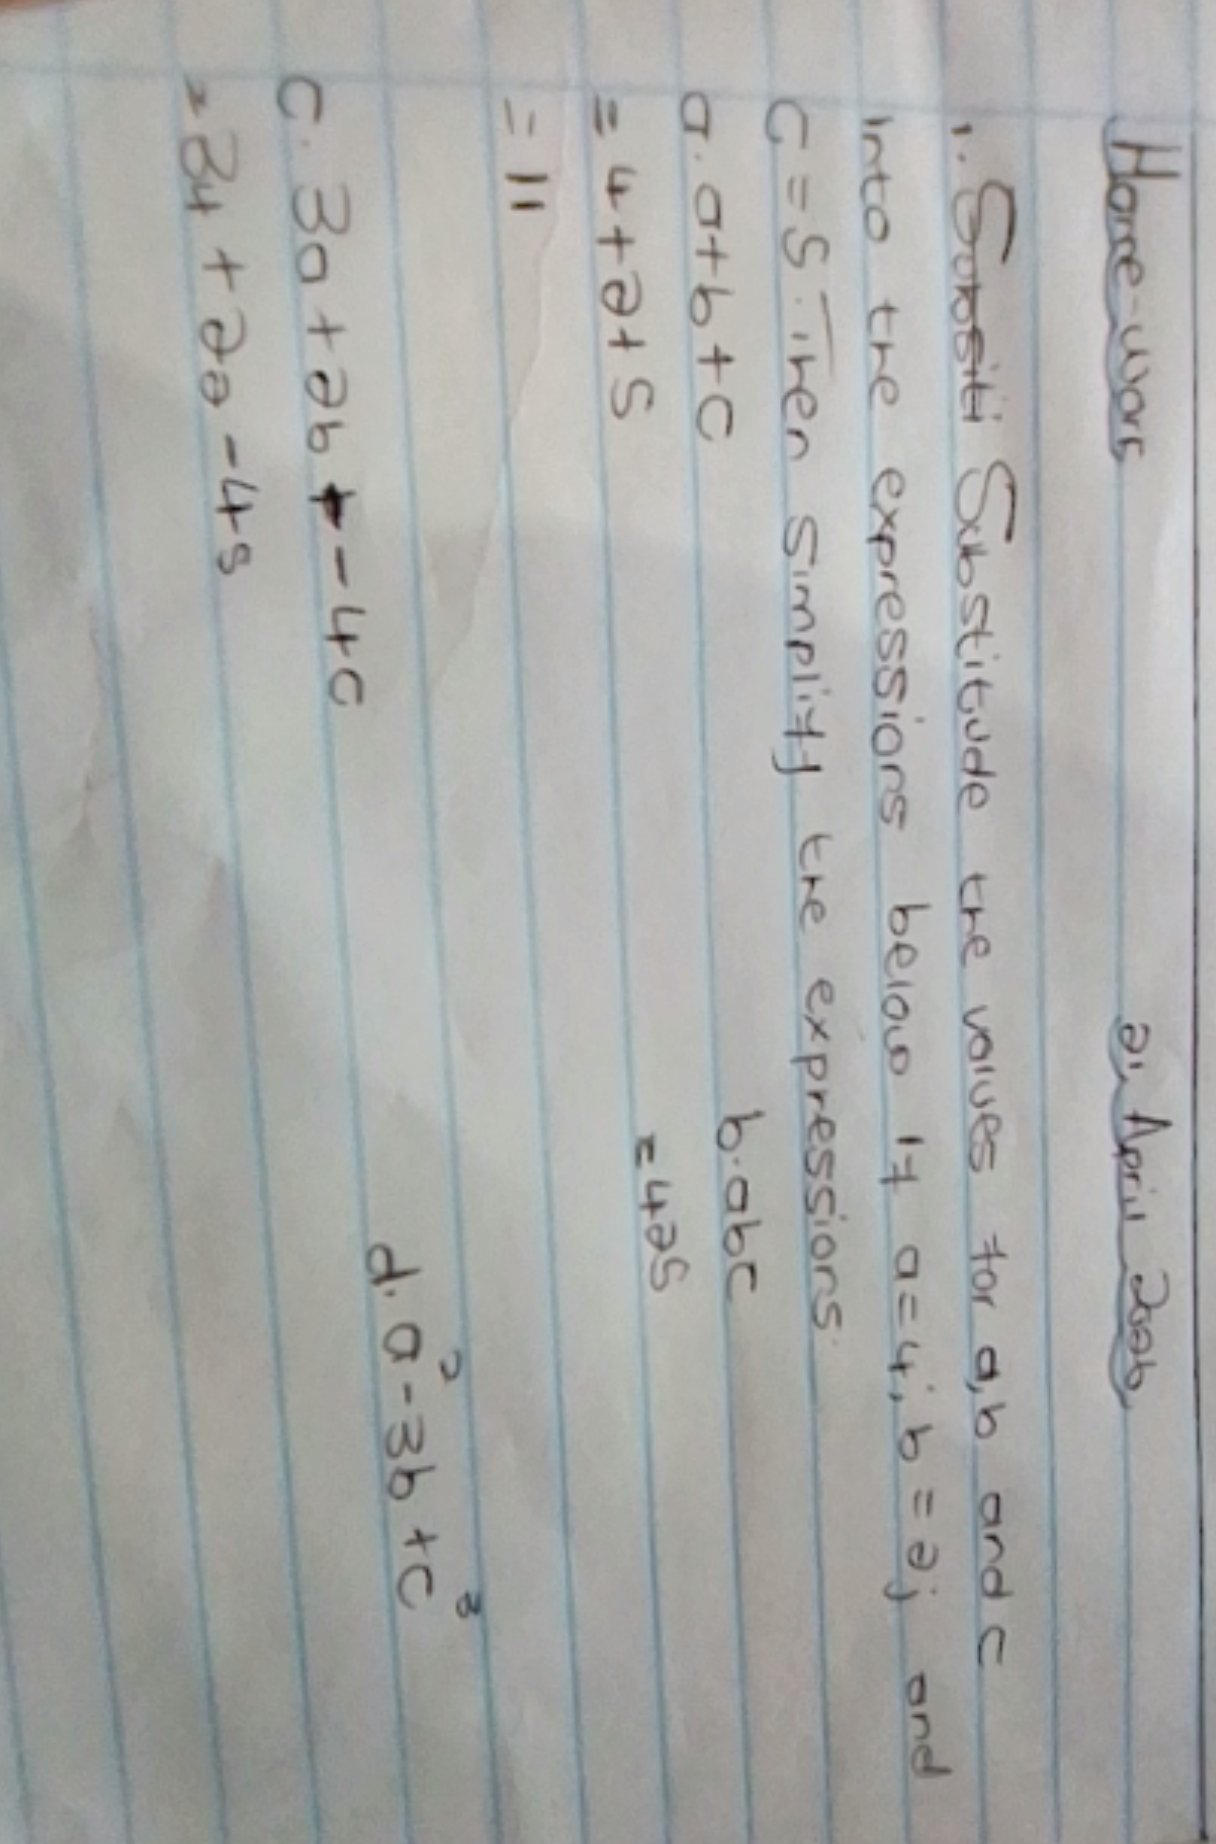 Home-work 21 April 2026
1. Subsiti Substitude the values for a,b and c
into the expressions below if a=4; b=2; and
c=5. Then simplify the expressions.
a. a+b+c b. abc
=4+2+5 =425
=11
c. 3a+2b+-4c d. a²-3b+c³
=34+22-45